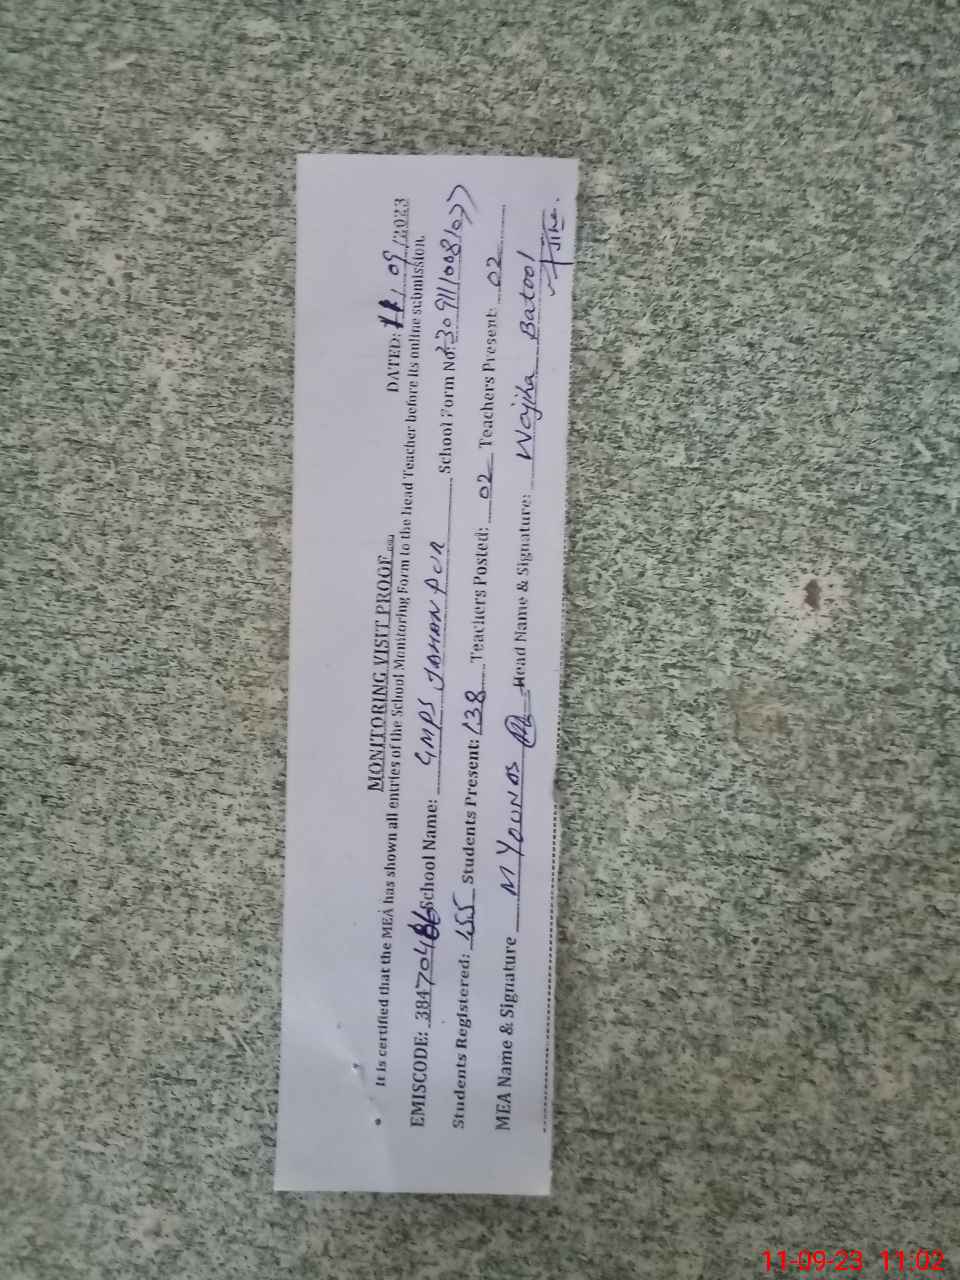 MONITORING VISIT PROOF
DATED: 11/09/2023
• It is certified that the MEA has shown all entries of the School Monitoring Form to the head Teacher before its online submission.
EMISCODE: 38470486 School Name: GMPS JAHAN PUR School Form No: 23091110081077
Students Registered: 155 Students Present: 138 Teachers Posted: 02 Teachers Present: 02
MEA Name & Signature M YOUNAS Head Name & Signature: Wajiha Batool
11-09-23 11:02